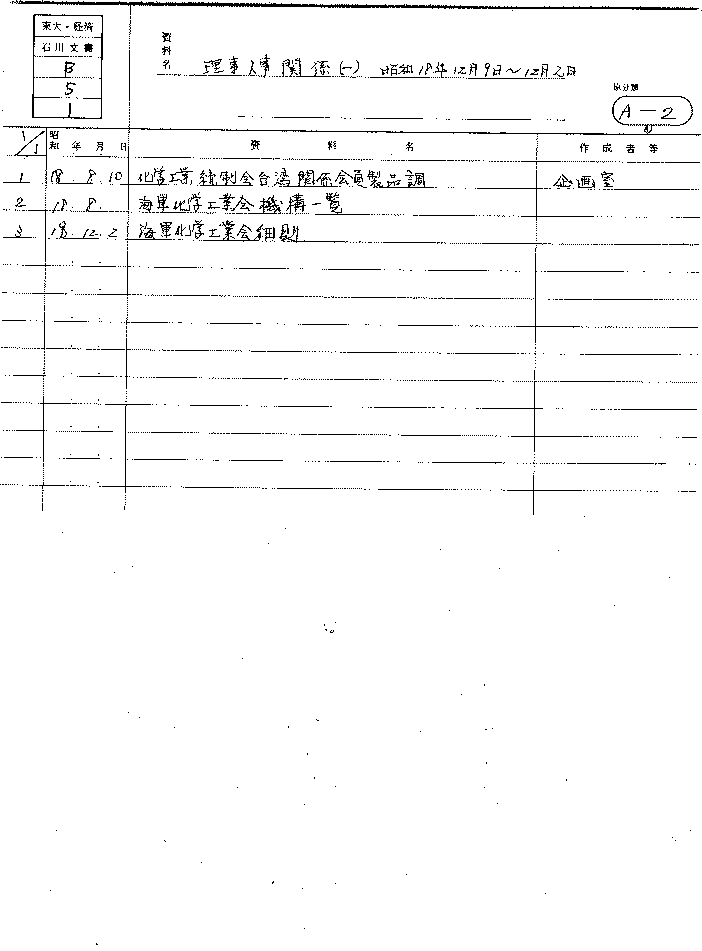 東大・経済
石川文書
B
5
1
資料名 理事人事関係(一) 昭和18年12月9日～12月2日
原分類
A-2
1/1 昭和 年 月 日 資料名 作成者等
1 18. 8. 10 化学工業統制会台湾関係会員製品調 企画室
2 18. 8. 海軍化学工業会機構一覧
3 18. 12. 2 海軍化学工業会細則